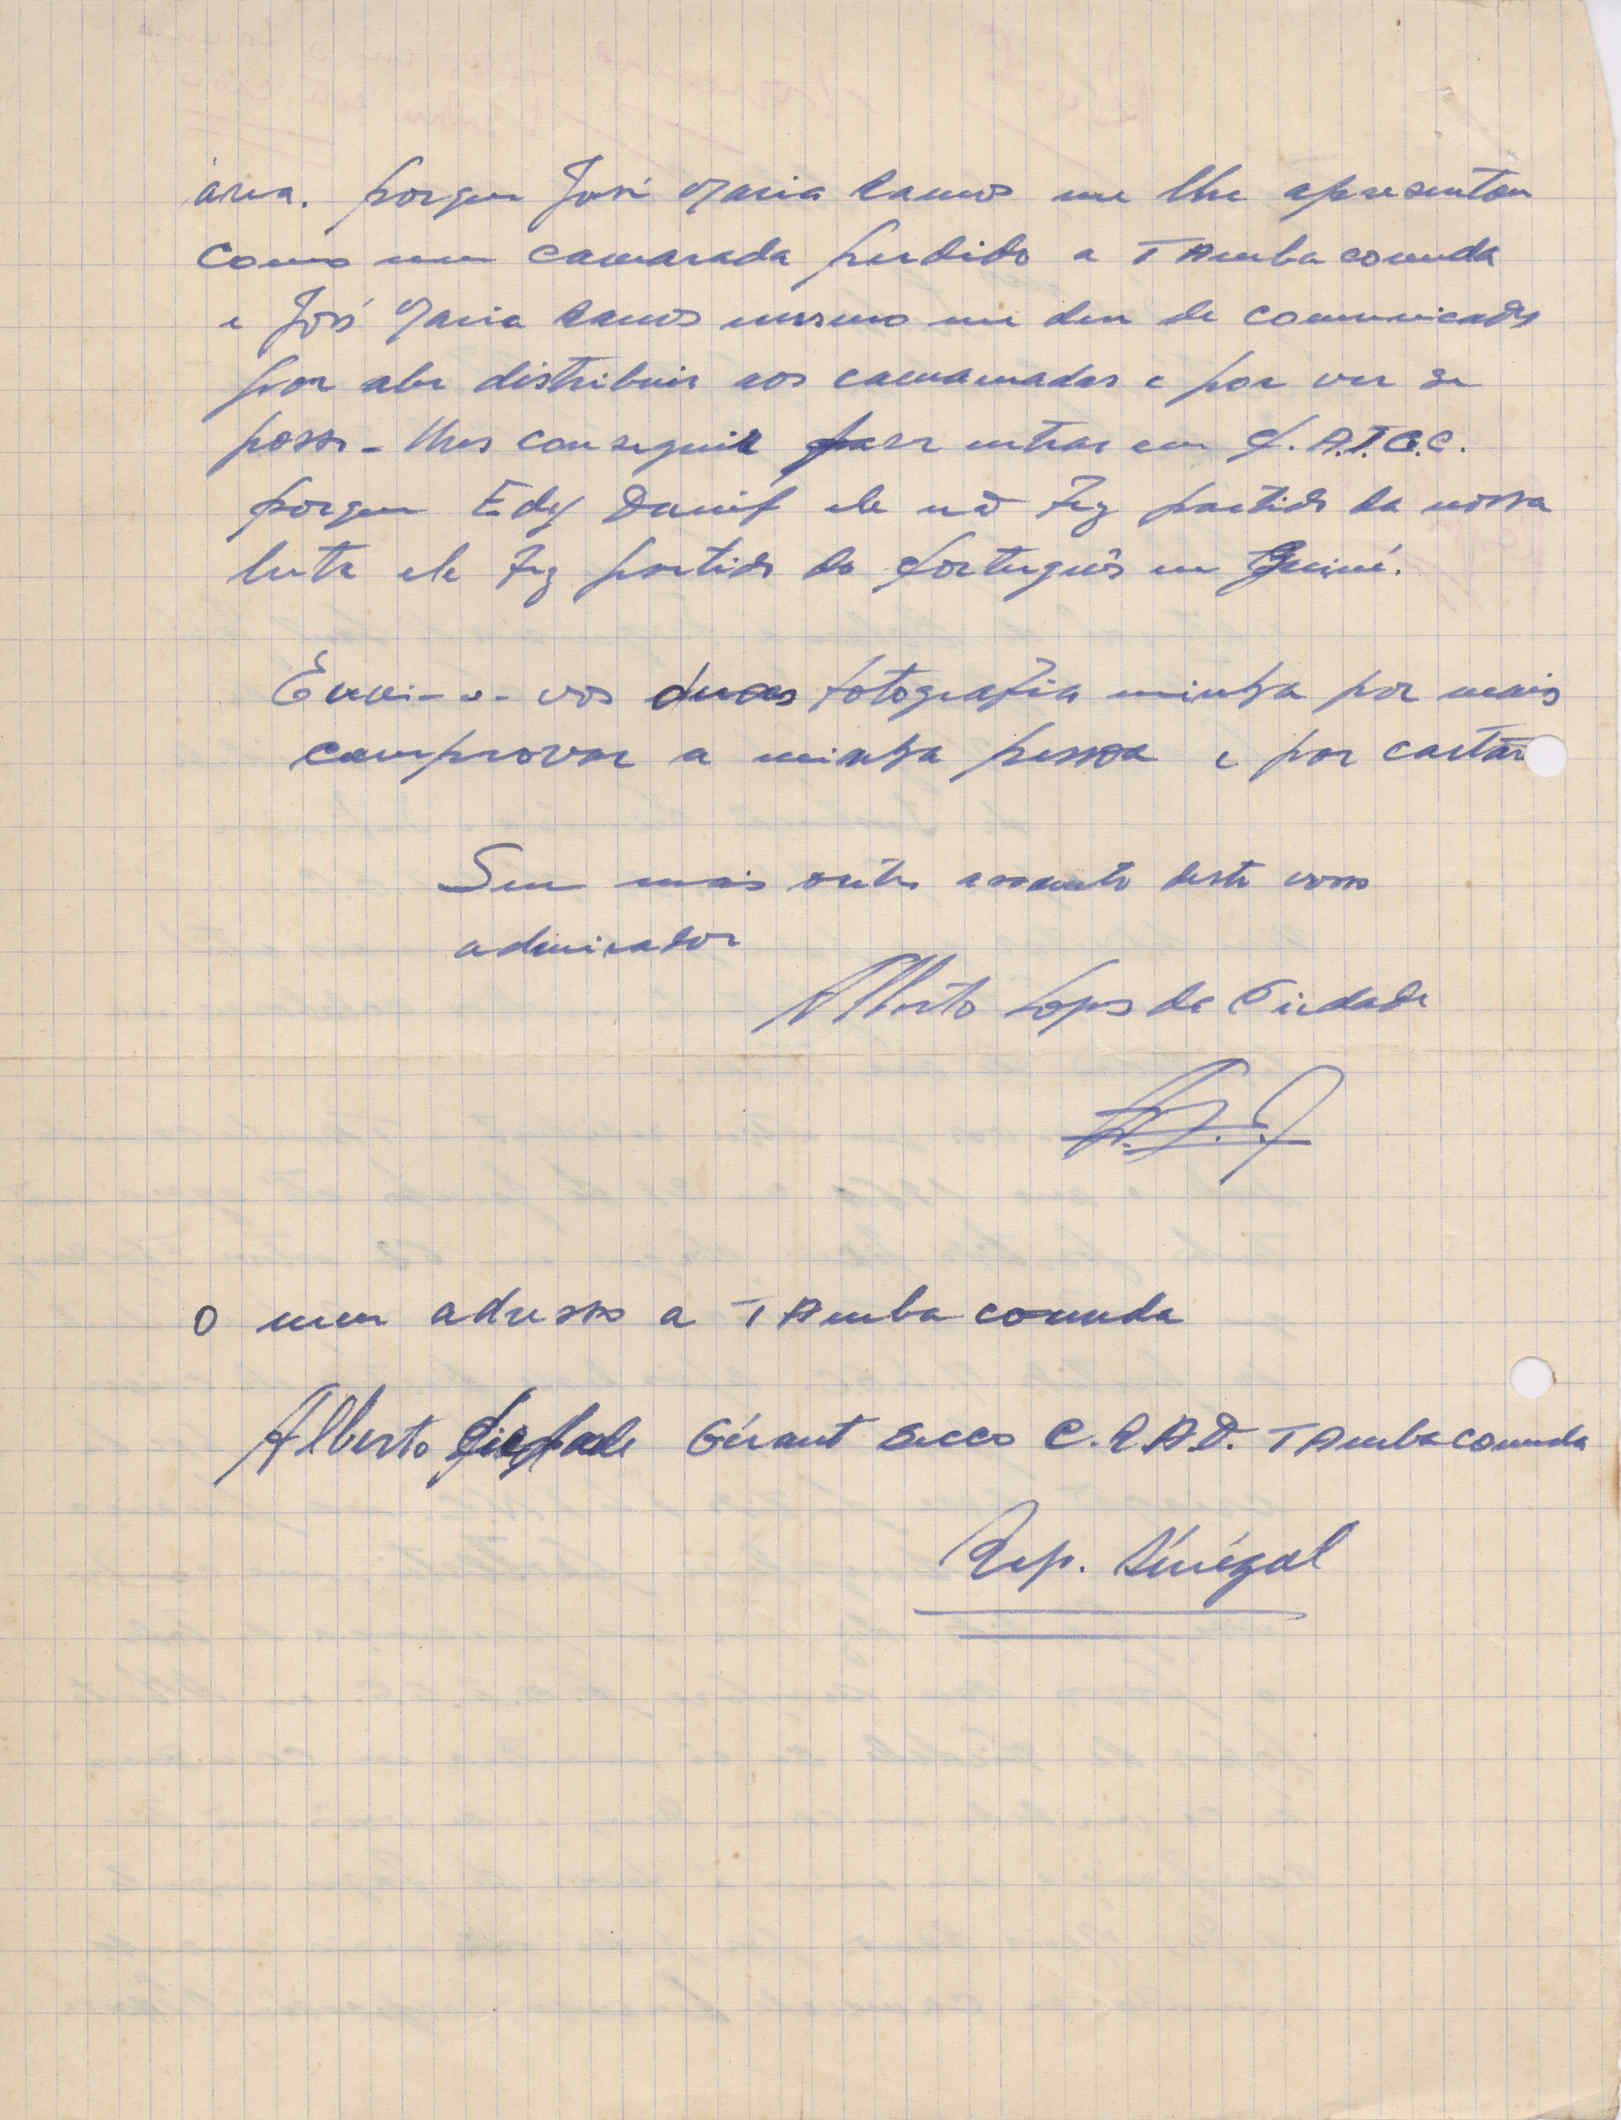 área. porque José Maria Ramos me lhe apresentou
Como um camarada perdido a TAmbacounda
e José Maria Ramos mesmo me deu de comunicados
por distribuir aos camamadas e por ver se
posso-lhes conseguir entrar em P.A.I.G.C.
porque Edy ele nõ Fez partido da nossa
luta ele Fez partido do português em Guiné.
Envi-o-vos duas fotografia minha por mais
comprovar a minha pessoa e por cartão
Sem mais outro assunto deste vosso
admirador
Alberto Lopes da Piedade
O meu adresso a TAmbacounda
Alberto Piedade Gérant Secco C.R.A.D. TAmbacounda
Rep. Sénégal